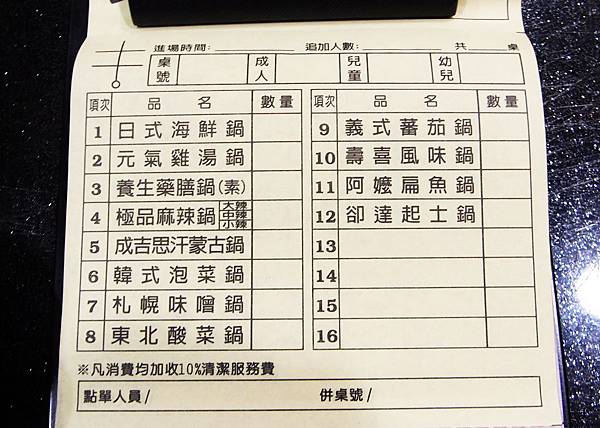 進場時間: 追加人數: 共 桌
桌號 成人 兒童 幼兒
項次 品名 數量
1 日式海鮮鍋
2 元氣雞湯鍋
3 養生藥膳鍋(素)
4 極品麻辣鍋 大辣 中辣 小辣
5 成吉思汗蒙古鍋
6 韓式泡菜鍋
7 札幌味噌鍋
8 東北酸菜鍋
項次 品名 數量
9 義式蕃茄鍋
10 壽喜風味鍋
11 阿嬤扁魚鍋
12 卻達起士鍋
13
14
15
16
※凡消費均加收10%清潔服務費
點單人員/ 併桌號/